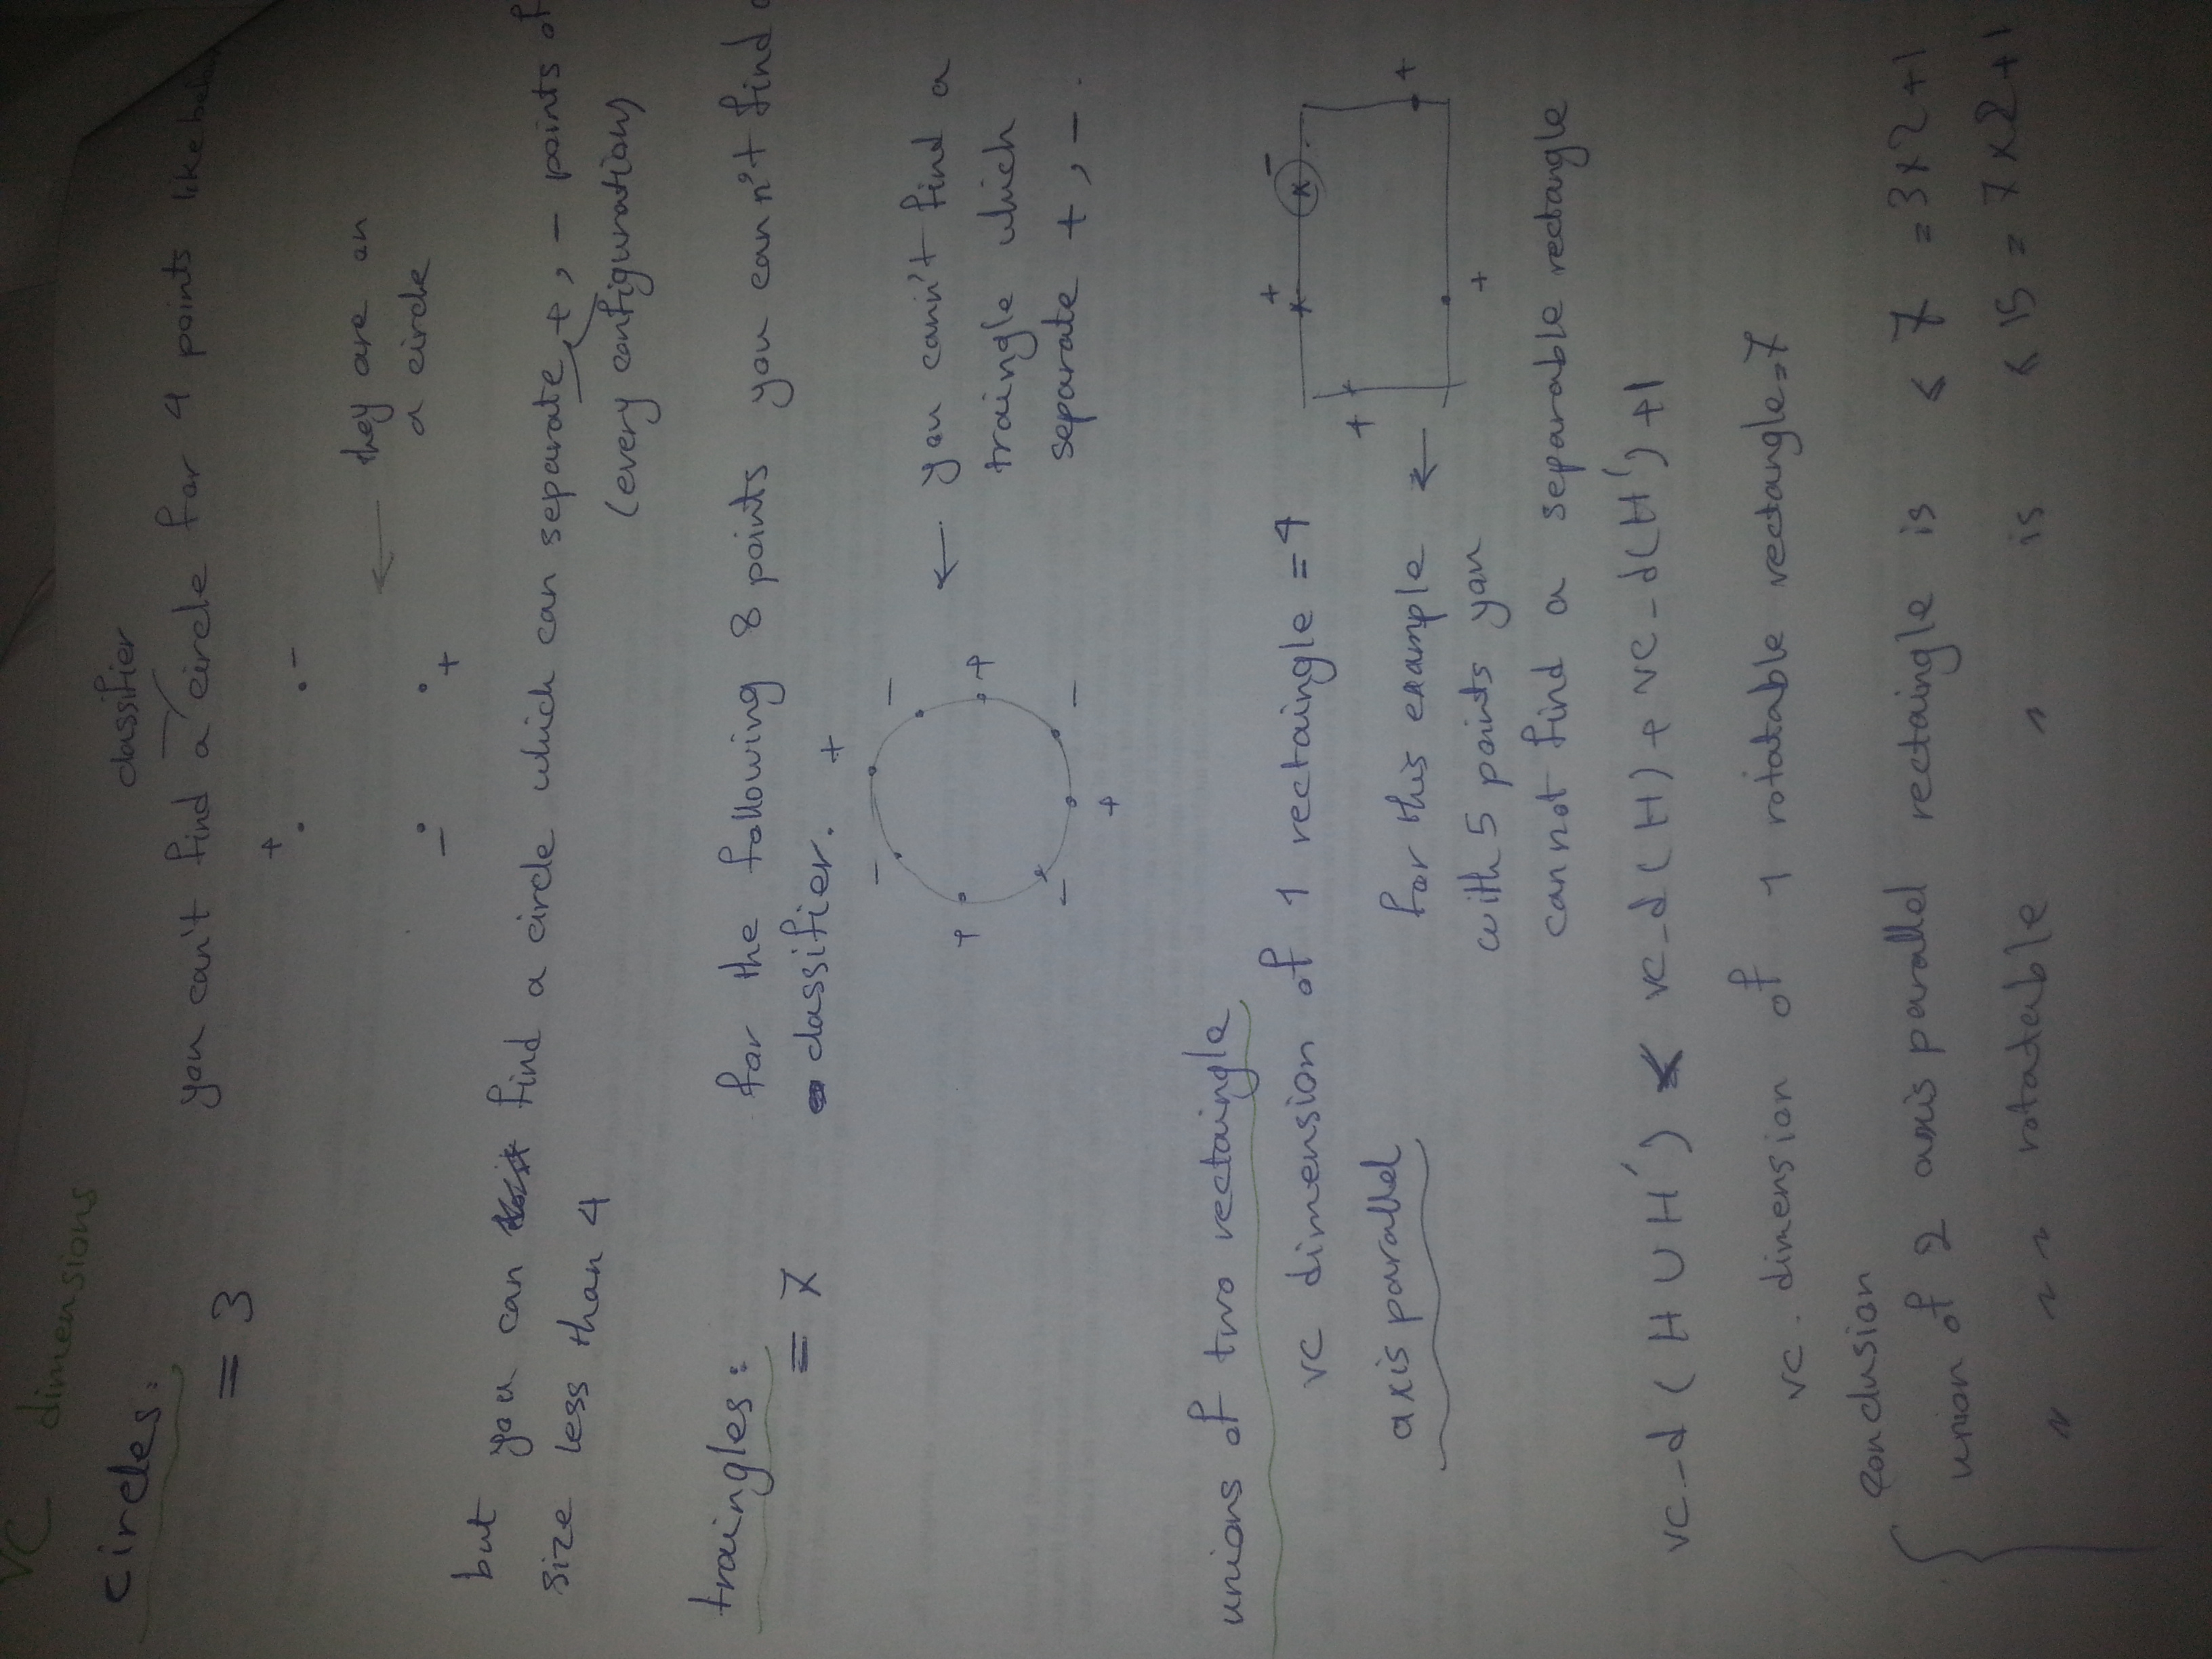 VC dimensions
circles:
= 3
classifier
you can't find a circle for 4 points like
+ -
← they are on
a circle
- +
but you can find a circle which can separate +, - points of
size less than 4 (every configuration)
traingles:
= 7
for the following 8 points you can't find
classifier.
+ - + - + - + -
← you can't find a
traingle which
separate +, -.
unions of two rectaingle
vc dimension of 1 rectaingle = 4
axis parallel
for this example ←
with 5 points you
cannot find a separable rectangle
+ + - + +
vc-d (H ∪ H') ≤ vc-d(H) + vc-d(H') +1
vc. dimension of 1 rotatable rectangle=7
conclusion
union of 2 axis parallel rectaingle is ≤ 7 = 3x2+1
" " " rotadable " is ≤ 15 = 7x2+1